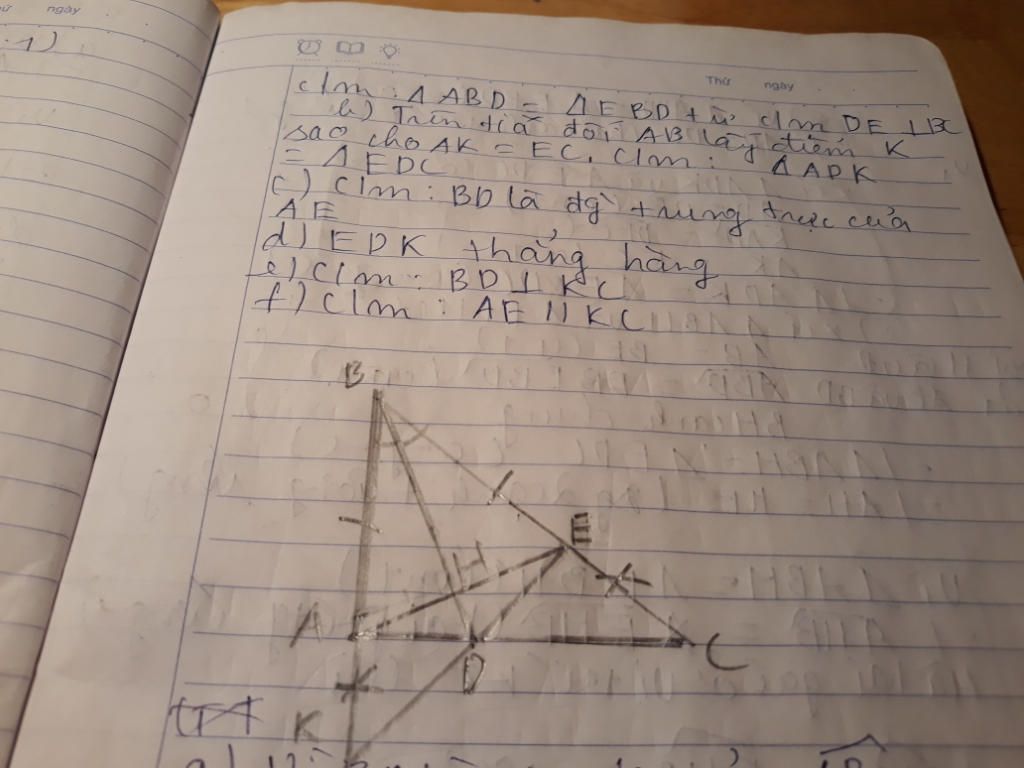 Thứ ngày
ngày
:1)
c/m : Δ ABD = ΔEBD từ c/m DE ⊥ BC
b) Trên tia đối AB lấy điểm K
sao cho AK = EC. C/m : Δ ADK
= Δ EDC
c) C/m : BD là đg trung trực của
AE
d) EDK thẳng hàng
e) C/m : BD ⊥ KC
f) C/m : AE // KC
B
E
H
A
D
C
K